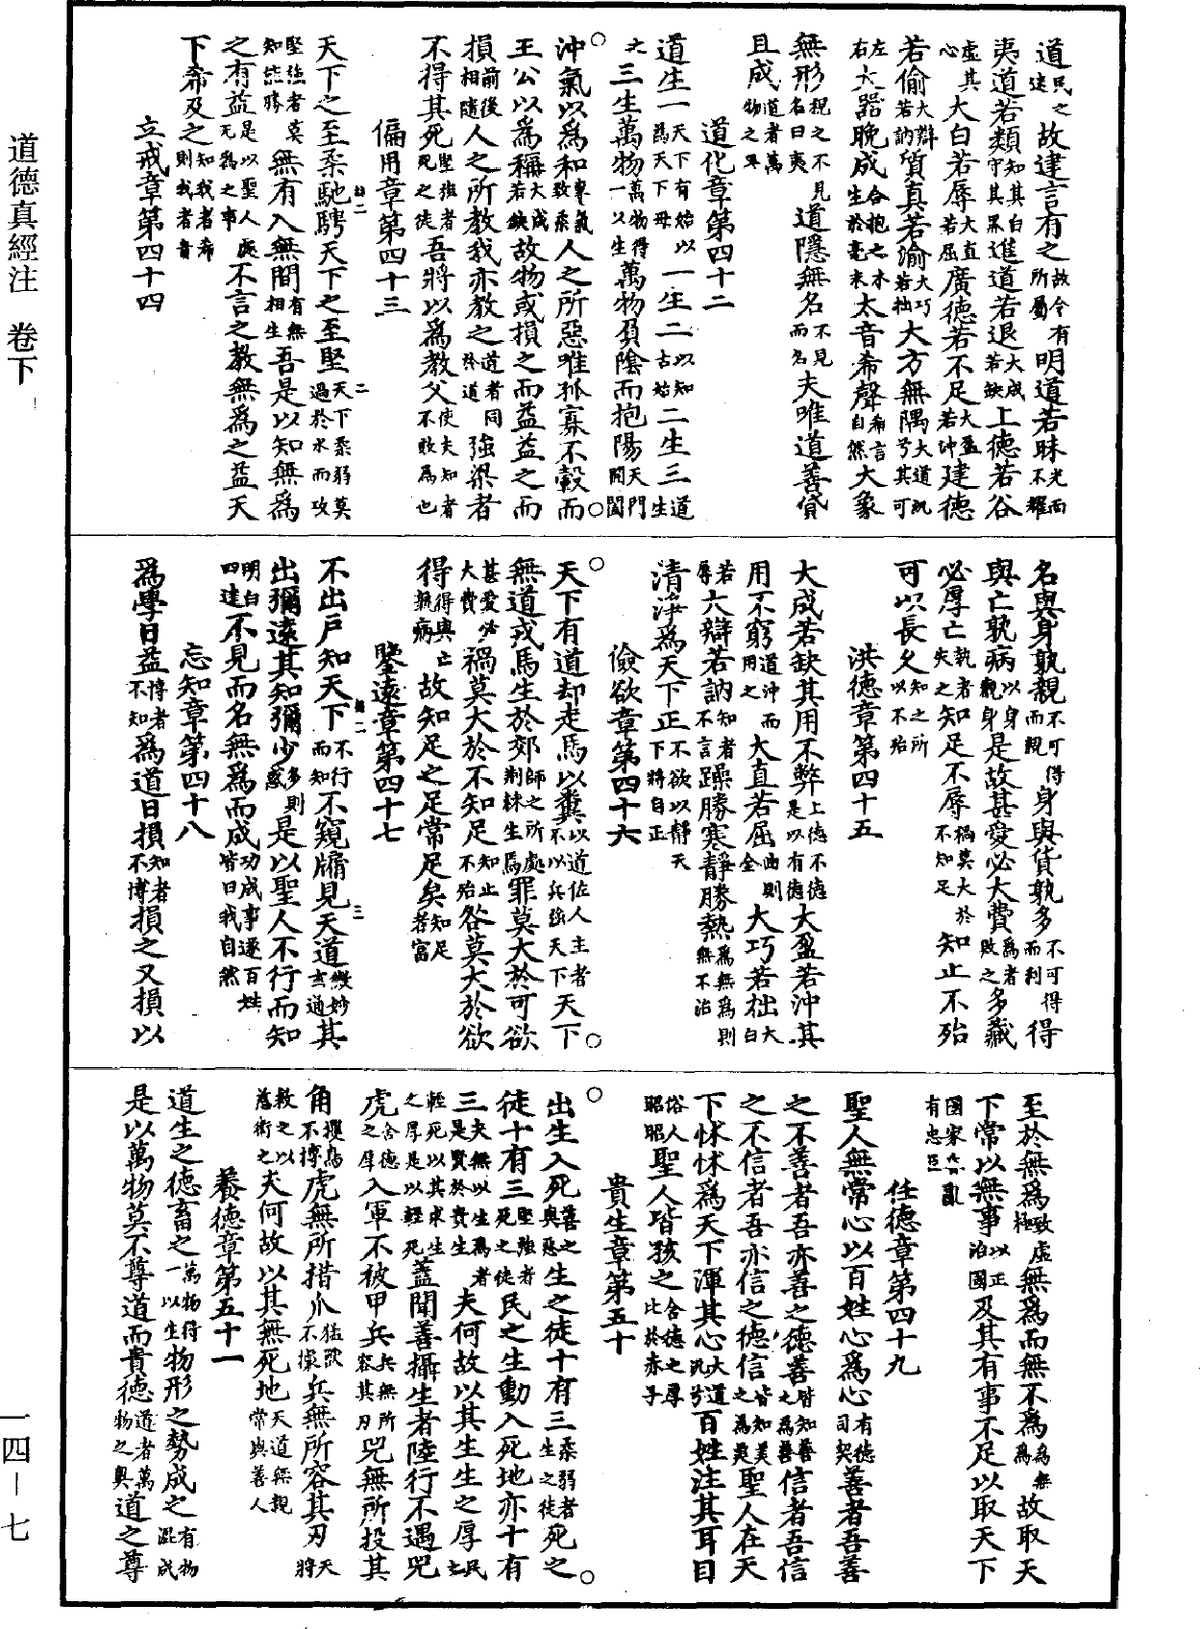 道德真經注　卷下
一四－七
道民之迷故建言有之故令有所屬明道若昧光而不耀
夷道若類知其白守其黑進道若退大成若缺上德若谷
虛其心大白若辱大直若屈廣德若不足大盈若沖建德
若偷大辯若訥質真若渝大巧若拙大方無隅大道汎兮其可
左右大器晚成合抱之木生於毫末太音希聲希言自然大象
無形視之不見名曰夷道隱無名不見而名夫唯道善貸
且成道者萬物之奧
道化章第四十二
道生一天下有始以為天下母一生二以知古始二生三道生
之三生萬物萬物得一以生萬物負陰而抱陽天門開闔
沖氣以為和專氣致柔人之所惡唯孤寡不轂而
王公以為稱大成若缺故物或損之而益益之而
損前後相隨人之所教我亦教之道者同於道強梁者
不得其死堅強者死之徒吾將以為教父使夫知者不敢為也
偏用章第四十三
天下之至柔馳騁天下之至堅天下柔弱莫過於水而攻
堅強者莫知能勝無有入無間有無相生吾是以知無為
之有益是以聖人處无為之事不言之教無為之益天
下希及之知我者希則我者貴
立戒章第四十四
名與身孰親不可得而親身與貨孰多不可得而利得
與亡孰病以身觀身是故甚愛必大費為者敗之多藏
必厚亡執者失之知足不辱禍莫大於不知足知止不殆
可以長久知之所以不殆
洪德章第四十五
大成若缺其用不弊上德不德是以有德大盈若沖其
用不窮道沖而用之大直若屈曲則全大巧若拙大白
若辱大辯若訥知者不言躁勝寒靜勝熱為無為則無不治
清淨為天下正不欲以靜天下將自正
儉欲章第四十六
天下有道却走馬以糞以道佐人主者不以兵強天下天下
無道戎馬生於郊師之所處荆棘生焉罪莫大於可欲
甚愛必大費禍莫大於不知足知止不殆咎莫大於欲
得得與亡孰病故知足之足常足矣知足者富
鑒遠章第四十七
不出戶知天下不行而知不窺牖見天道微妙玄通其
出彌遠其知彌少多則惑是以聖人不行而知
明白四達不見而名無為而成功成事遂百姓皆曰我自然
忘知章第四十八
為學日益博者不知為道日損知者不博損之又損以
至於無為致虛極無為而無不為為無為故取天
下常以無事以正治國及其有事不足以取天下
國家昏亂有忠臣
任德章第四十九
聖人無常心以百姓心為心有德司契善者吾善
之不善者吾亦善之德善皆知善之為善信者吾信
之不信者吾亦信之德信皆知美之為美聖人在天
下怵怵為天下渾其心大道汎兮百姓注其耳目
俗人昭昭聖人皆孩之含德之厚比於赤子
貴生章第五十
出生入死善之與惡生之徒十有三柔弱者生之徒死之
徒十有三堅強者死之徒民之生動入死地亦十有
三夫無以生為者是賢於貴生夫何故以其生生之厚民之
輕死以其求生之厚是以輕死蓋聞善攝生者陸行不遇兕
虎含德之厚入軍不被甲兵兵無所容其刃兕無所投其
角攫鳥不搏虎無所措爪猛獸不據兵無所容其刃天將
救之以慈衛之夫何故以其無死地天道無親常與善人
養德章第五十一
道生之德畜之萬物得一以生物形之勢成之有物混成
是以萬物莫不尊道而貴德道者萬物之奧道之尊